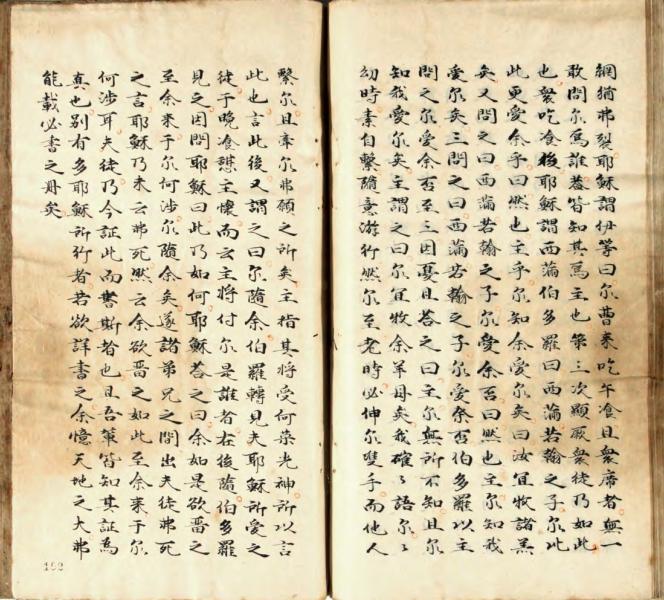 網猶弗裂耶穌謂伊等曰尔曹来吃午飡且衆席者無一
敢問尔為誰葢皆知其為主也第三次顕厥衆徒乃如此
也衆吃飡後耶穌謂西滿伯多羅曰西滿若翰之子尔比
此更愛余乎曰然也主乎尔知余愛尔矣曰汝宜牧諸羔
矣又問之曰西滿若翰之子尔愛余否曰然也主尔知我
愛尔矣三問之曰西滿若翰之子尔愛余否伯多羅以主
問之尔愛余否至三因憂且荅之曰主尔無所不知且尔
知我愛尔矣主謂之曰尔宜牧余羊毋矣我確〻語尔〻
幼時素自繫隨意游行然尔至老時必伸尔雙手而他人
繫尔且帶尔弗願之所矣主指其将受何死光神所以言
此也言此後又謂之曰尔隨余伯羅轉見夫耶穌所愛之
徒于晚飡憇主懷而云主将付尔是誰者在後隨伯多羅
見之因問耶穌曰此乃如何耶穌荅之曰余如是欲畱之
至余来于尔何渉尔隨余矣遂諸弟兄之間出夫徒弗死
之言耶穌乃未云弗死然云余欲畱之如此至余来于尔
何渉耳夫徒乃今証此而書斯者也且吾等皆知其証為
真也别有多耶穌所行者若欲詳書之余憶天地之大弗
能載必書之冊矣
192